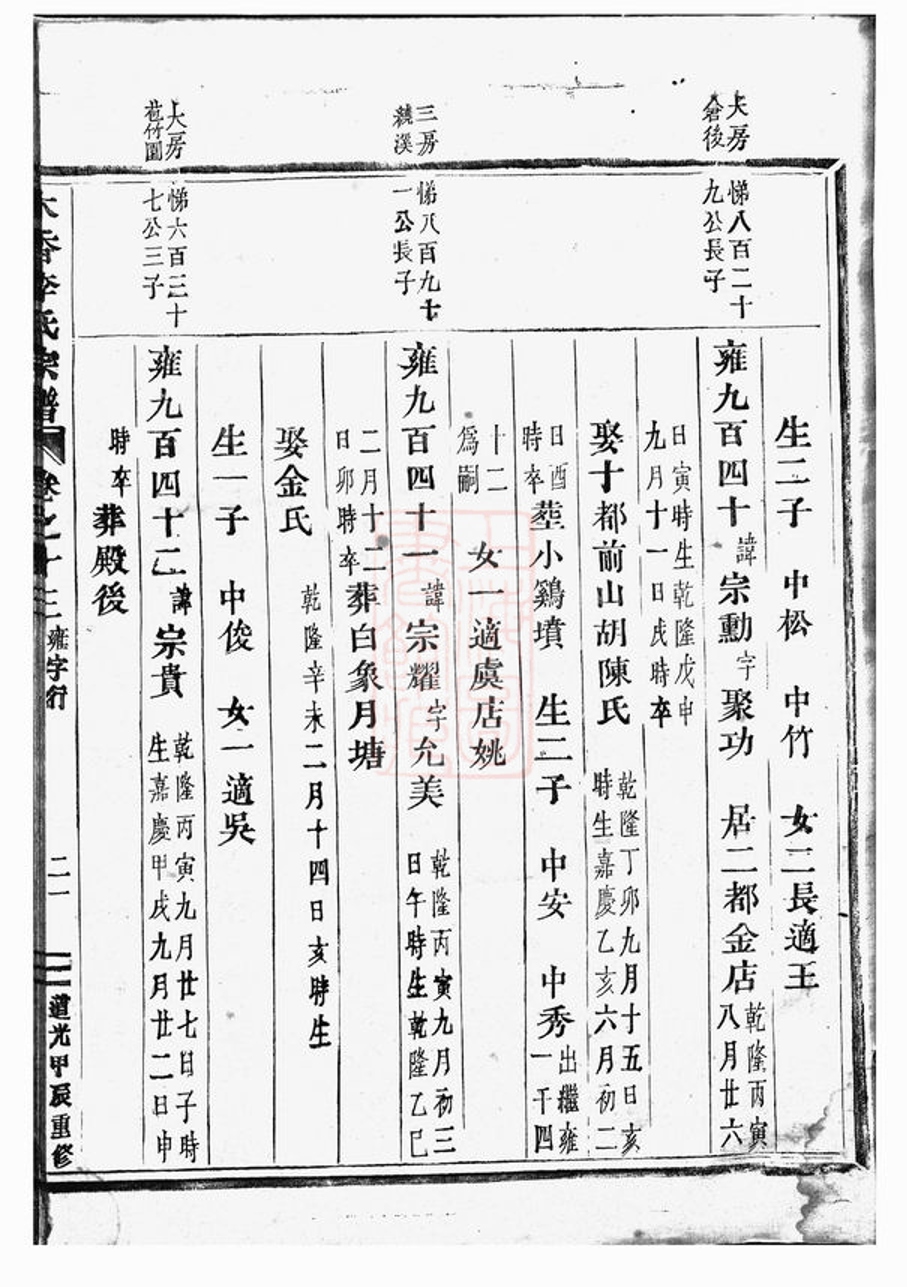 大房
倉後
悌八百二十
九公長子
三房
繞溪
悌八百九七
一公長子
大房
苞竹園
悌六百三十
七公三子
生二子　中松　中竹　女二長適王
雍九百四十諱宗勳字聚功　居二都金店乾隆丙寅
八月廿六
日寅時生乾隆戊申
九月十一日戌時卒
娶十都前山胡陳氏　乾隆丁卯九月十五日亥
時生嘉慶乙亥六月初二
日酉
時卒
塟小鷄墳　生二子　中安　中秀出繼雍
一千四
十二
爲嗣
女一適虞店姚
雍九百四十一諱宗耀字允美　乾隆丙寅九月初三
日午時生乾隆乙巳
二月十二
日卯時卒
葬白象月塘
娶金氏　乾隆辛未二月十四日亥時生
生一子　中俊　女一適吳
雍九百四十二諱宗貴　乾隆丙寅九月廿七日子時
生嘉慶甲戌九月廿二日申
時卒葬殿後
李氏宗譜　卷之十三　雍字行　二一　道光甲辰重修